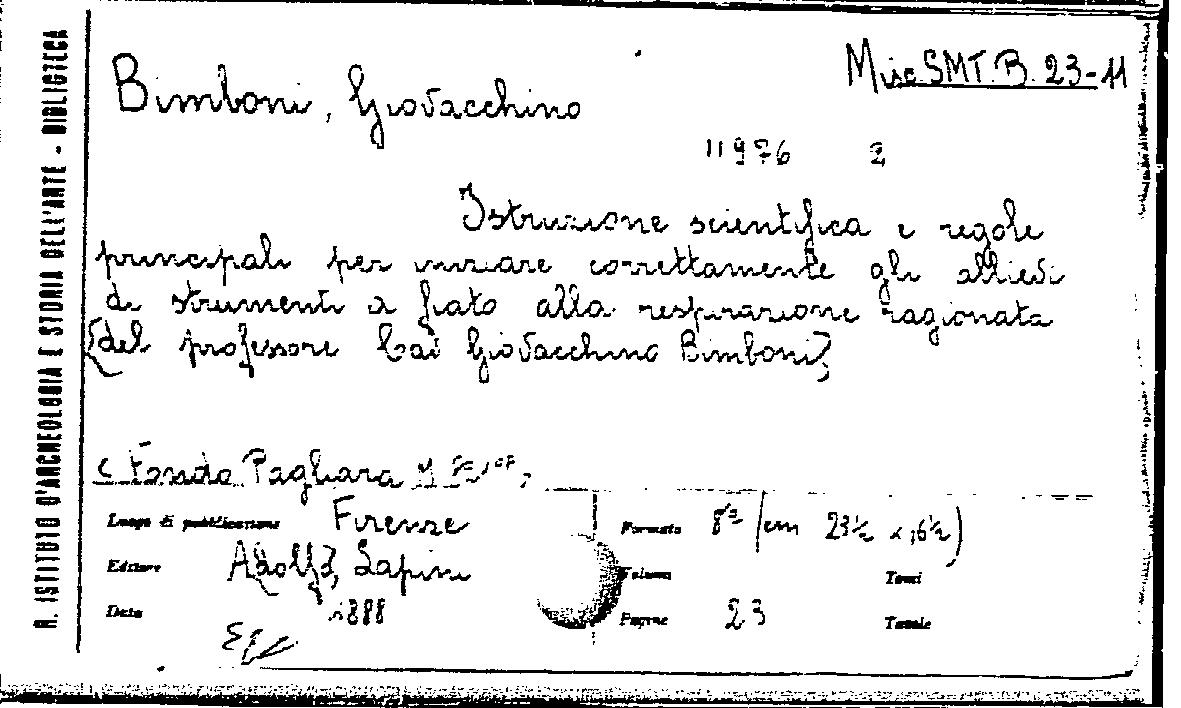 R. ISTITUTO D'ARCHEOLOGIA E STORIA DELL'ARTE - BIBLIOTECA
Misc SMT. B. 23-11
Bimboni, Giovacchino
11976 2
Istruzione scientifica e regole
principali per iniziare correttamente gli allievi
di strumenti a fiato alla respirazione ragionata
[del professore Cav Giovacchino Bimboni]
Fondo Pagliara
Luogo di pubblicazione Firenze
Formato 8º (cm 23½ x 16½)
Editore Adolf[o] Lapini
Volume Tomi
Data 1888
Pagine 23 Tavole